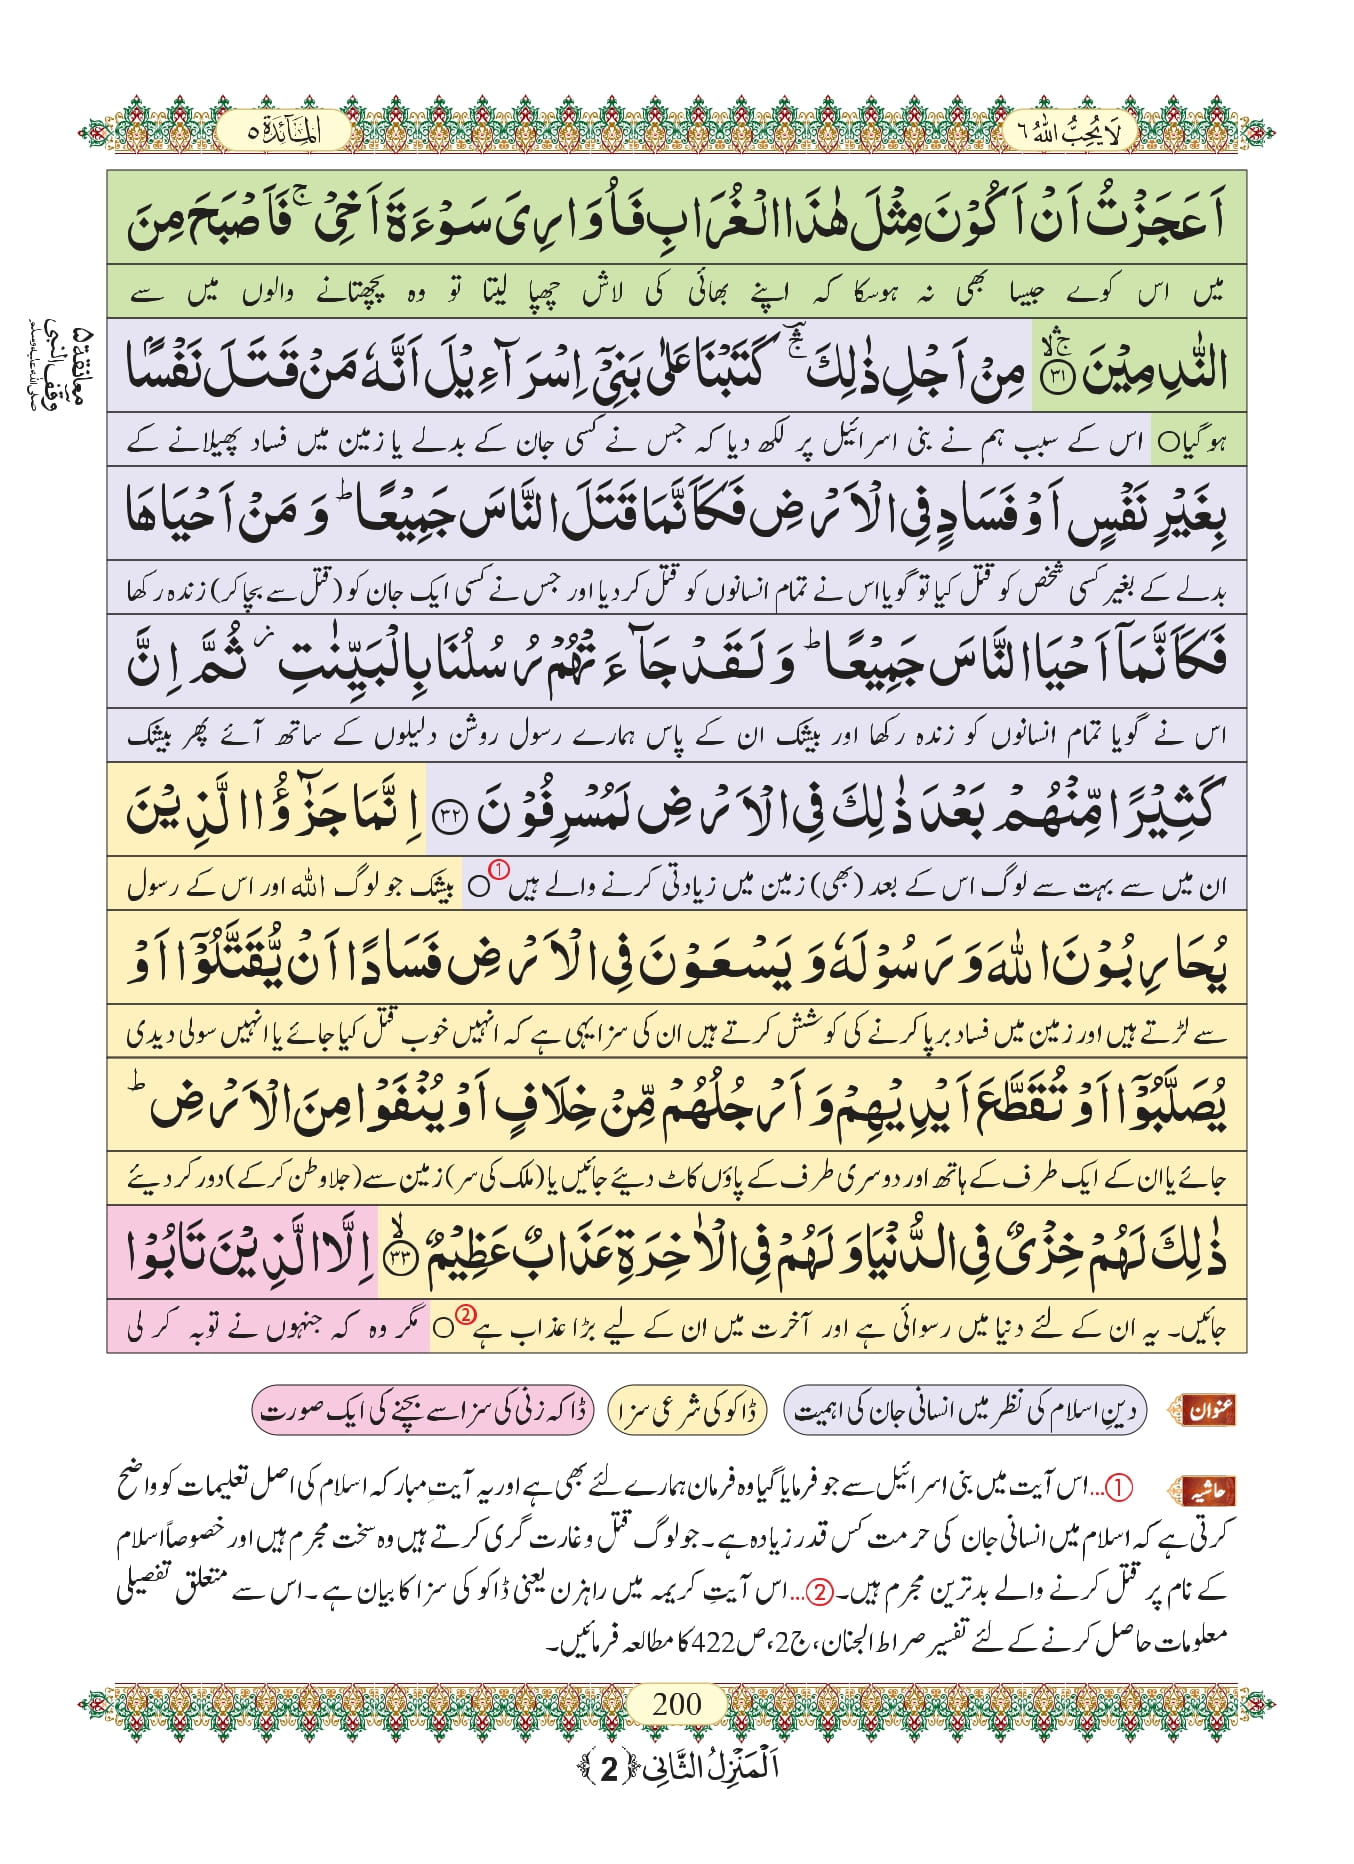 لَا یُحِبُّ اللّٰهُ ٦
الْمَآئِدَة ٥
اَعَجَزْتُ اَنْ اَكُوْنَ مِثْلَ هٰذَا الْغُرَابِ فَاُوَارِیَ سَوْءَةَ اَخِیْ ۚ فَاَصْبَحَ مِنَ
میں اس کوے جیسا بھی نہ ہوسکا کہ اپنے بھائی کی لاش چھپا لیتا تو وہ پچھتانے والوں میں سے
النّٰدِمِیْنَ ﴿٣١﴾ مِنْ اَجْلِ ذٰلِكَ ۛۚ كَتَبْنَا عَلٰی بَنِیْۤ اِسْرَآءِیْلَ اَنَّهٗ مَنْ قَتَلَ نَفْسًۢا
معانقة ۵
وقف النبی
صلی اللہ علیہ وسلم
ہوگیا○ اس کے سبب ہم نے بنی اسرائیل پر لکھ دیا کہ جس نے کسی جان کے بدلے یا زمین میں فساد پھیلانے کے
بِغَیْرِ نَفْسٍ اَوْ فَسَادٍ فِی الْاَرْضِ فَكَاَنَّمَا قَتَلَ النَّاسَ جَمِیْعًا ؕ وَ مَنْ اَحْیَاهَا
بدلے کے بغیر کسی شخص کو قتل کیا تو گویا اس نے تمام انسانوں کو قتل کردیا اور جس نے کسی ایک جان کو (قتل سے بچا کر) زندہ رکھا
فَكَاَنَّمَاۤ اَحْیَا النَّاسَ جَمِیْعًا ؕ وَ لَقَدْ جَآءَتْهُمْ رُسُلُنَا بِالْبَیِّنٰتِ ؗ ثُمَّ اِنَّ
اس نے گویا تمام انسانوں کو زندہ رکھا اور بیشک ان کے پاس ہمارے رسول روشن دلیلوں کے ساتھ آئے پھر بیشک
كَثِیْرًا مِّنْهُمْ بَعْدَ ذٰلِكَ فِی الْاَرْضِ لَمُسْرِفُوْنَ ﴿٣٢﴾ اِنَّمَا جَزٰٓؤُا الَّذِیْنَ
ان میں سے بہت سے لوگ اس کے بعد (بھی) زمین میں زیادتی کرنے والے ہیں①○ بیشک جو لوگ اللہ اور اس کے رسول
یُحَارِبُوْنَ اللّٰهَ وَ رَسُوْلَهٗ وَ یَسْعَوْنَ فِی الْاَرْضِ فَسَادًا اَنْ یُّقَتَّلُوْۤا اَوْ
سے لڑتے ہیں اور زمین میں فساد برپا کرنے کی کوشش کرتے ہیں ان کی سزا یہی ہے کہ انہیں خوب قتل کیا جائے یا انہیں سولی دیدی
یُصَلَّبُوْۤا اَوْ تُقَطَّعَ اَیْدِیْهِمْ وَ اَرْجُلُهُمْ مِّنْ خِلَافٍ اَوْ یُنْفَوْا مِنَ الْاَرْضِ ؕ
جائے یا ان کے ایک طرف کے ہاتھ اور دوسری طرف کے پاؤں کاٹ دیئے جائیں یا (ملک کی سر) زمین سے (جلا وطن کرکے) دور کر دیئے
ذٰلِكَ لَهُمْ خِزْیٌ فِی الدُّنْیَا وَ لَهُمْ فِی الْاٰخِرَةِ عَذَابٌ عَظِیْمٌ ﴿٣٣﴾ۙ اِلَّا الَّذِیْنَ تَابُوْا
جائیں۔ یہ ان کے لئے دنیا میں رسوائی ہے اور آخرت میں ان کے لیے بڑا عذاب ہے②○ مگر وہ کہ جنہوں نے توبہ کر لی
عنوان دینِ اسلام کی نظر میں انسانی جان کی اہمیت ڈاکو کی شرعی سزا ڈاکہ زنی کی سزا سے بچنے کی ایک صورت
حاشیہ ①...اس آیت میں بنی اسرائیل سے جو فرمایا گیا وہ فرمان ہمارے لئے بھی ہے اور یہ آیتِ مبارکہ اسلام کی اصل تعلیمات کو واضح
کرتی ہے کہ اسلام میں انسانی جان کی حرمت کس قدر زیادہ ہے۔ جو لوگ قتل و غارت گری کرتے ہیں وہ سخت مجرم ہیں اور خصوصاً اسلام
کے نام پر قتل کرنے والے بدترین مجرم ہیں۔②...اس آیتِ کریمہ میں راہزن یعنی ڈاکو کی سزا کا بیان ہے۔ اس سے متعلق تفصیلی
معلومات حاصل کرنے کے لئے تفسیر صراط الجنان، ج2، ص422 کا مطالعہ فرمائیں۔
200
اَلْمَنْزِلُ الثَّانِی ﴿2﴾